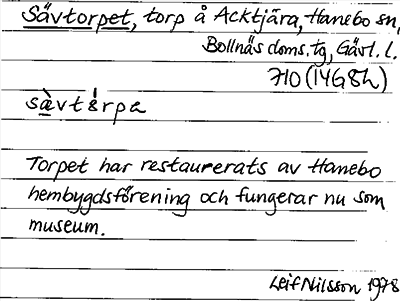 Sävtorpet, torp å Acktjära, Hanebo sn,
Bollnäs doms. tg, Gävl. l.
710 (14G8h)
sàvtårpa
Torpet har restaurerats av Hanebo
hembygdsförening och fungerar nu som
museum.
Leif Nilsson 1978